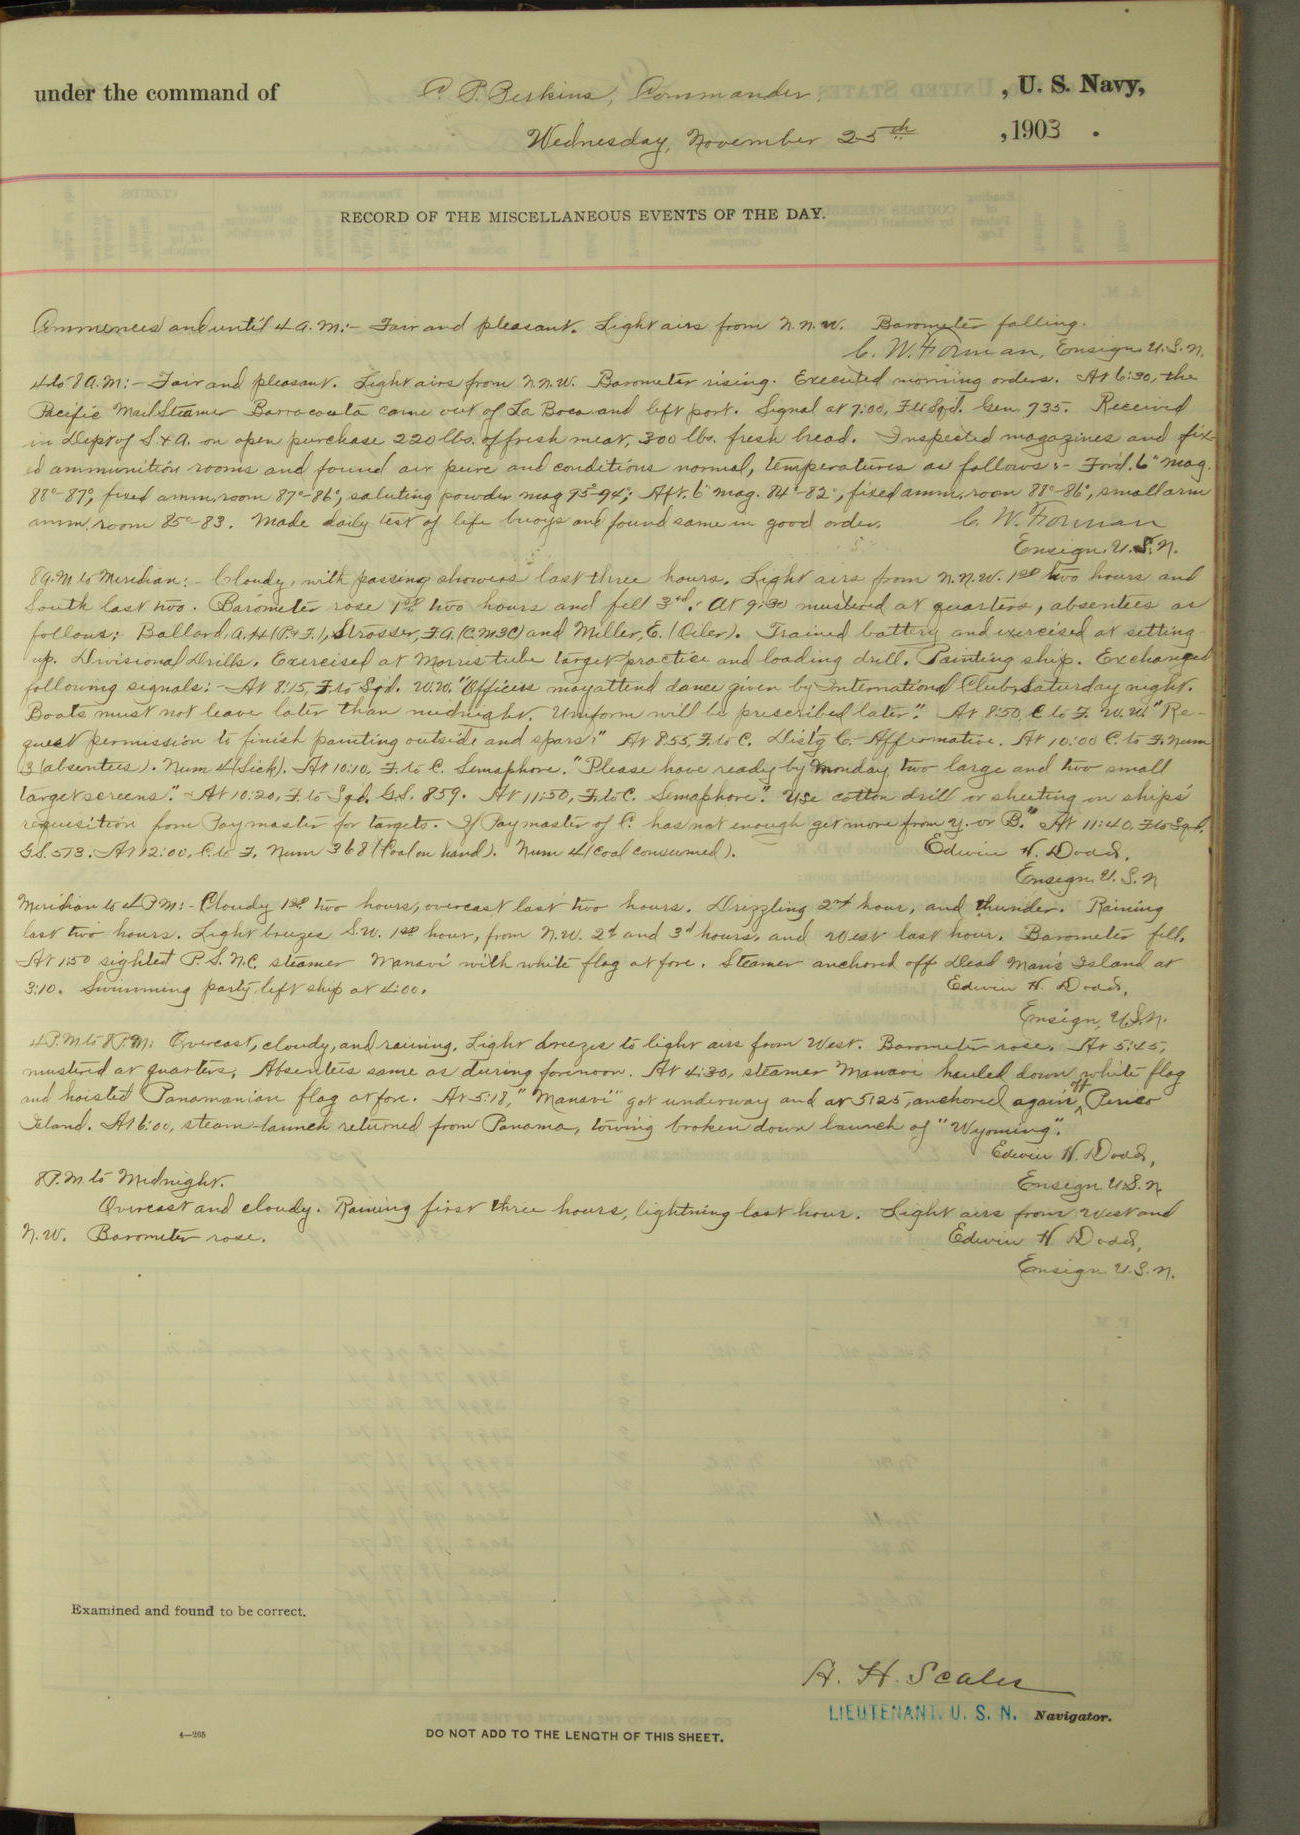 under the command of C. P. Perkins, Commander, , U. S. Navy,
Wednesday, November 25th , 1903 .
RECORD OF THE MISCELLANEOUS EVENTS OF THE DAY.
Commences and until 4 a.m:- Fair and pleasant. Light airs from N.N.W. Barometer falling.
C. W. Forman, Ensign U.S.N.
4 to 8 A.M:- Fair and pleasant. Light airs from N.N.W. Barometer rising. Executed morning orders. At 6:30, the
Pacific Mail Steamer Barracouta came out of La Boca and left port. Signal at 7:00, F to Sqd. Gen. 735. Received
in Dept of S. & A. on open purchase 220 lbs. of fresh meat, 300 lbs. fresh bread. Inspected magazines and fix-
ed ammunition rooms and found air pure and conditions normal, temperatures as follows:- For'd. 6" mag.
88°-87°, fixed amm. room 87°-86°, saluting powder mag 95°-94°; Aft. 6" mag. 84°-82°, fixed amm. room 88°-86°, small arm
amm. room 85°-83. Made daily test of life buoys and found same in good order. C. W. Forman
Ensign, U.S.N.
8 A.M to Meridian:- Cloudy, with passing showers last three hours. Light airs from N.N.W. 1st two hours and
South last two. Barometer rose 1st two hours and fell 3rd. At 9:30 mustered at quarters, absentees as
follows: Ballard, A.H. (P. & F.), Strosser, F.A. (C.M3C) and Miller, E. (Oiler). Trained battery and exercised at setting-
up. Divisional Drills. Exercised at Morris tube target practice and loading drill. Painting ship. Exchanged
following signals:- At 8:15, F. to Sq'd. W.W. "Officers may attend dance given by International Club, Saturday night.
Boats must not leave later than midnight. Uniform will be prescribed later." At 8:50, C to F. W.W. "Re-
quest permission to finish painting outside and spars." At 8:55, F. to C. Dist'g C.- Affirmative. At 10:00 C. to F. Num
3 (absentees). Num 4 (Sick). At 10:10, F. to C. Semaphore. "Please have ready by Monday two large and two small
target screens." At 10:20, F. to Sqd. G.S. 859. At 11:50, F. to C. Semaphore. "Use cotton drill or sheeting on ships'
requisition from Paymaster for targets. If Paymaster of C. has not enough get more from Y. or B." At 11:40, F to Sqd.
G.S. 573. At 12:00, C. to F. Num 368 (Coal on hand). Num 4 (coal consumed). Edwin H. Dodd,
Ensign U.S.N
Meridian to 4 P M:- Cloudy 1st two hours, overcast last two hours. Drizzling 2nd hour, and thunder. Raining
last two hours. Light breezes S.W. 1st hour, from N.W. 2d and 3d hours, and West last hour. Barometer fell.
At 1:50 sighted P.S.N.C. steamer Manavi with white flag at fore. Steamer anchored off Dead Man's Island at
3:10. Swimming party left ship at 4:00. Edwin H. Dodd,
Ensign, U.S.N.
4 P.M to 8 P.M: Overcast, cloudy, and raining. Light breezes to light airs from West. Barometer rose. At 5:45,
mustered at quarters, Absentees same as during forenoon. At 4:30, steamer Manavi hauled down white flag
and hoisted Panamanian flag at fore. At 5:18, "Manavi" got underway and at 5:25, anchored again off Perico
Island. At 6:00, steam-launch returned from Panama, towing broken down launch of "Wyoming".
Edwin H. Dodd,
8 P.M. to Midnight. Ensign U.S.N.
Overcast and cloudy. Raining first three hours, lightning last hour. Light airs from West and
N.W. Barometer rose. Edwin H Dodd,
Ensign U.S.N.
Examined and found to be correct.
A. H. Scales
LIEUTENANT. U. S. N. Navigator.
4—265
DO NOT ADD TO THE LENGTH OF THIS SHEET.